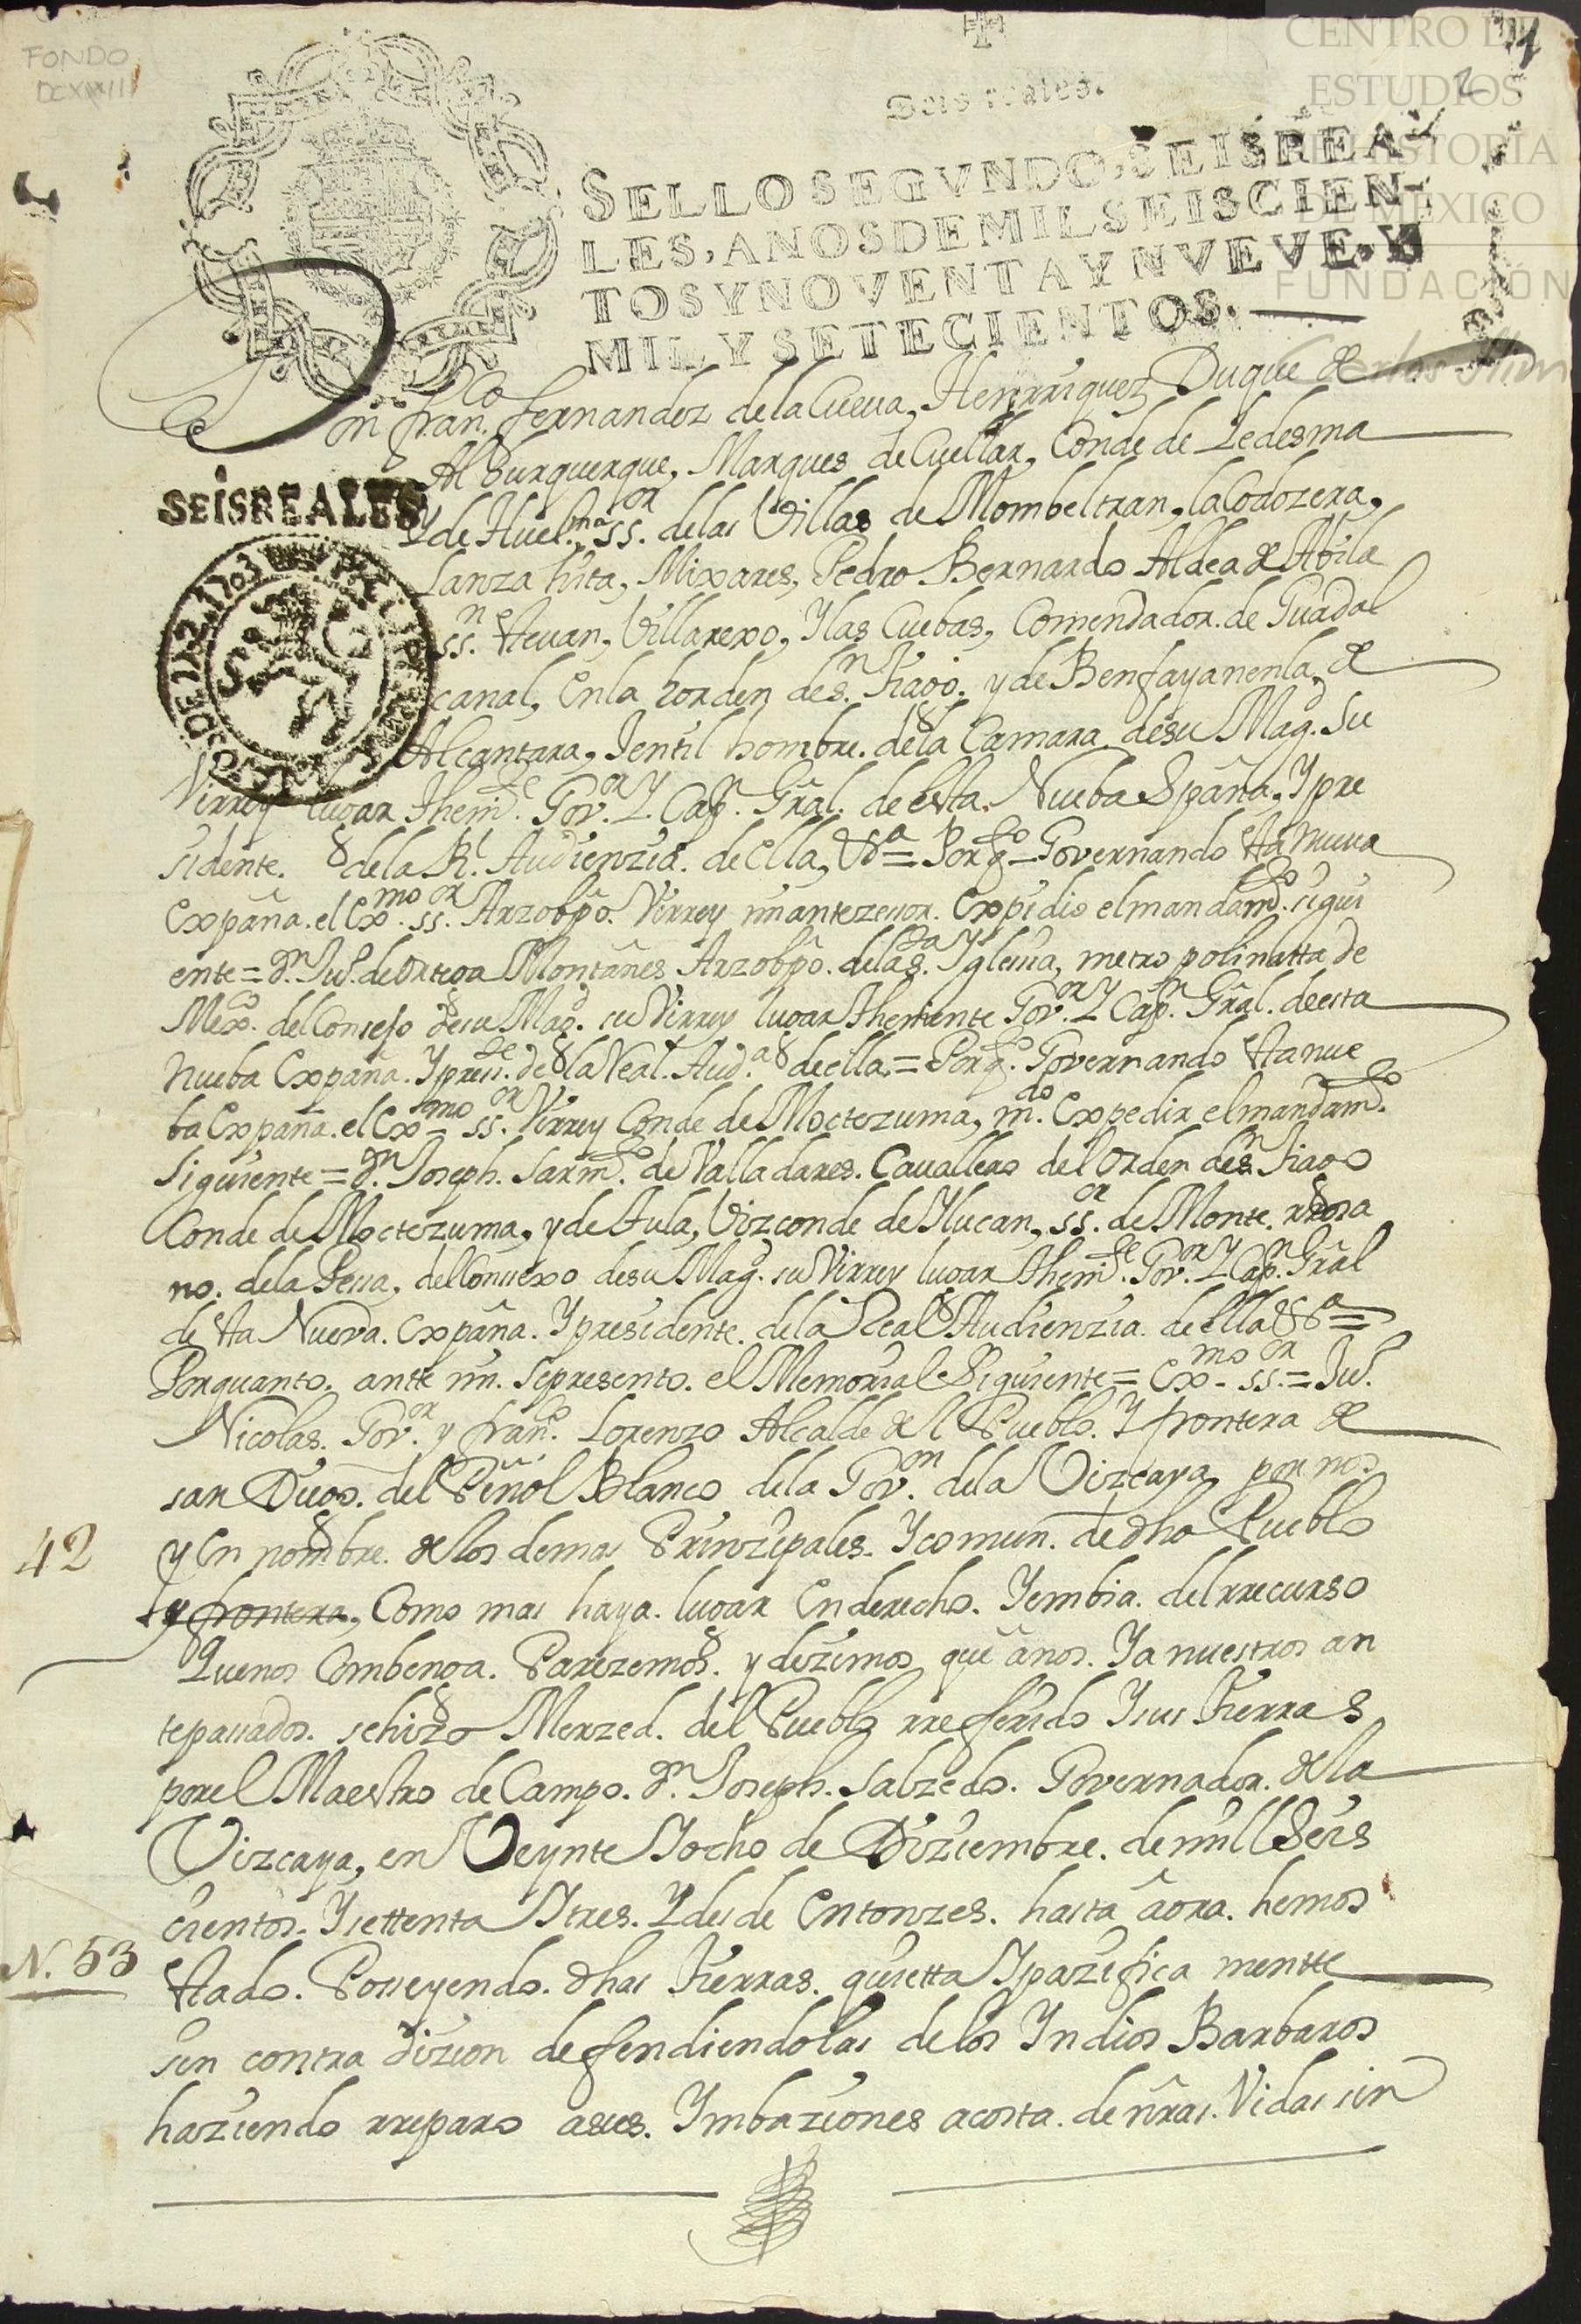 FONDO
DCXXIII
CENTRO DE
ESTUDIOS
DE HISTORIA
DE MÉXICO
FUNDACIÓN
Carlos Slim
2
Seis reales.
SELLO SEGVNDO, SEIS REA-
LES, AÑOS DE MIL SEISCIEN-
TOS Y NOVENTA Y NVEVE, Y
MIL Y SETECIENTOS.
SEISREALES
Don fran.co fernandez de la Cueua, Henrriquez Duque de
Al Burquerque, Marques de Cuellar, Conde de Ledesma
y de Huelma ss.or delas Villas de Mombeltran, la Codozera,
Lanza hita, Mixares, Pedro Bernardo Aldea de Abila
ss.n Steuan, Villarexo, Y las Cuebas, Comendador. de Guadal
canal, En la horden de s.n tiago. y de Benfayanenla, de
Alcantara, Jentil hombre. de la Camara desu Mag.d su
Virrey lugar Theni.te Gov.or Y Cap.n Grâl. de esta Nueba Spaña. Y pre
sidente. de la R.l Audienzia. de ella, &a = Porq.to Governando Sta nueua
Expaña. el Ex.mo ss.or Arzobpô. Virrey mi antezesor. Expidio el mandam.to sigui
ente = D.n Ju.o de Ortega Montañes Arzobpô. de la s.ta Yglesia, metro polinatta de
Mex.co del Consejo desu Mag.d su Virrey lugar theniente Gov.or Y Cap.n Grâl. de esta
Nueba Expaña. Y presi.te de la Real. Aud.a de ella = Porq.to Governando Sta nue
ba Expaña. el Ex.mo ss.or Virrey Conde de Moctezuma, m.do Expedir el mandam.to
Siguiente = D.n Joseph. Sarm.to de Valladares. Cauallero del Orden de s.n tiago
Conde de Moctezuma, y de tula, Vizconde de Ylucan, ss.or de Monte. rrosa
no. dela Pesa, del Consexo desu Mag.d su Virrey lugar theni.te Gov.or Y Cap.n Grâl
de Sta Nueva. Expaña. Y presidente. dela Real Audienzia. de ella &a =
Por quanto. ante mi. se presento. el Memorial Siguiente = Ex.mo ss.or = Ju.o
Nicolas. Gov.or y fran.co Lorenzo Alcalde del Pueblo. Y frontera de
san Diego. del Peñol Blanco de la Gov.on de la Vizcaya, por nos
y En nombre. de los demas Prinzipales. Y comun. de dho Pueblo
y frontera, Como mas haya. lugar En derecho. Y embia. del rrecurso
Que nos Combenga. Parezemos. y dezimos que â nos. Y a nuestros an
tepasados. se hizo Merzed. del Pueblo rreferido Y sus tierras
por el Maestro de Campo. D.n Joseph. Salzedo. Governador. de la
Vizcaya, en Veynte Y ocho de Diziembre. de mill Seis
cientos. Y settenta Y tres. Y desde Entonzes. hasta âora. hemos
Stado. Posseyendo. dhas tierras. quietta Y pazifica mente
sin contra dizion defendiendolas de los Yndios Barbaros
haziendo rreparo a sus. Ymbaziones a costa. de nrâs. Vidas sin
42
N. 53